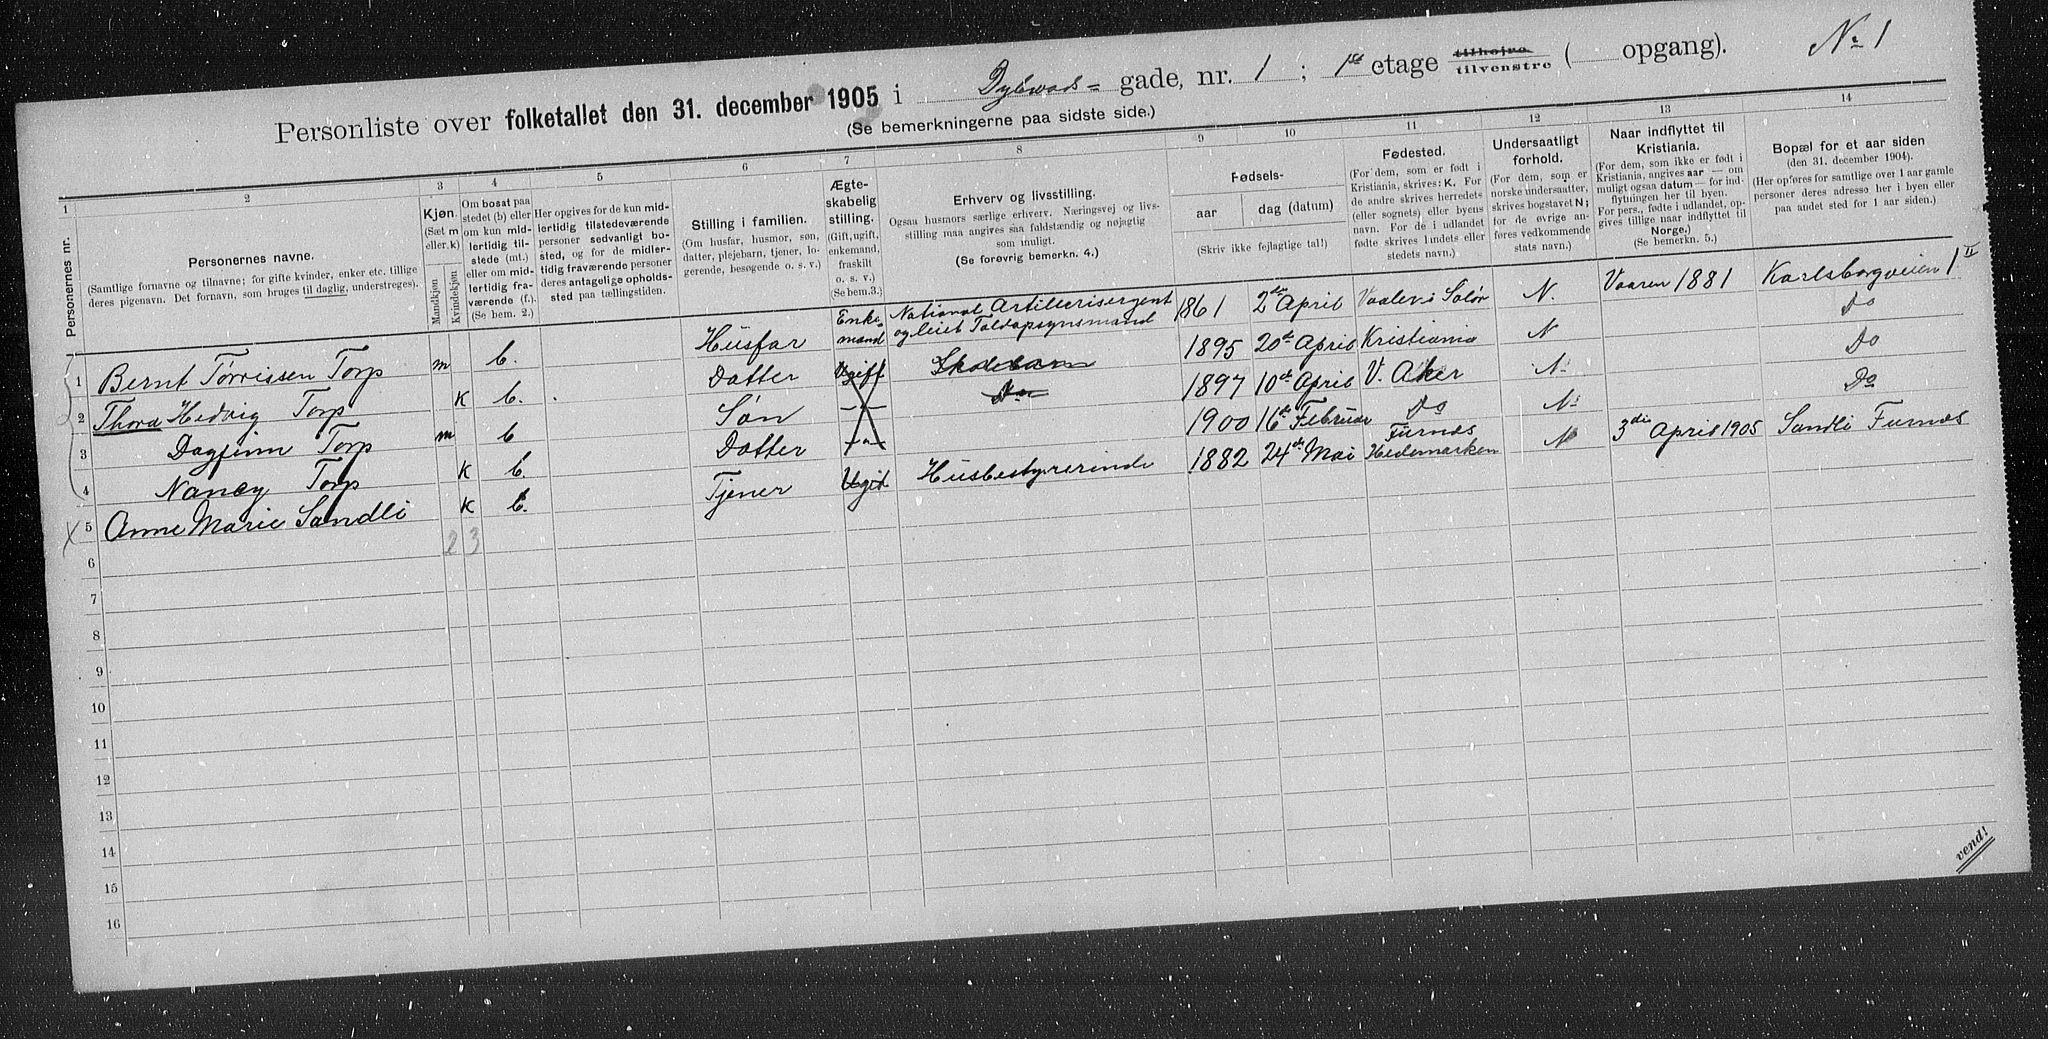 Personliste over folketallet den 31. december 1905 i Dybwads= gade, nr. 1 ; 1ste etage tilhøjre tilvenstre ( opgang). No 1
(Se bemerkningerne paa sidste side.)
1 2 3 4 5 6 7 8 9 10 11 12 13 14
Personernes nr.
Personernes navne.
(Samtlige fornavne og tilnavne; for gifte kvinder, enker etc. tillige
deres pigenavn. Det fornavn, som bruges til daglig, understreges).
Kjøn.
(Sæt m
eller k)
Mandkjøn
Kvindekjøn
Om bosat paa
stedet (b) eller
om kun mid-
lertidig til-
stede (mt.)
eller om mid-
lertidig fra-
værende (f.).
(Se bem. 2.)
Her opgives for de kun mid-
lertidig tilstedeværende
personer sedvanlig bo-
sted, og for de midler-
tidig fraværende personer
deres antagelige opholds-
sted paa tællingstiden.
Stilling i familien.
(Om husfar, husmor, søn,
datter, plejebarn, tjener, lo-
gerende, besøgende o. s. v.)
Ægte-
skabelig
stilling.
(Gift, ugift,
enkemand,
fraskilt
o. s. v.)
(Se bem.3.)
Erhverv og livsstilling.
Ogsaa husmors særlige erhverv. Næringsvej og livs-
stilling maa angives saa fuldstændig og nøjagtig
som muligt.
(Se forøvrig bemerkn. 4.)
Fødsels-
aar dag (datum)
(Skriv ikke fejlagtige tal!)
Fødested.
(For dem, som er født i
Kristiania, skrives: K. For
de andre skrives herredets
(eller sognets) eller byens
navn. For de i udlandet
fødte skrives landets eller
stedets navn.)
Undersaatligt
forhold.
(For dem, som er
norske undersaatter,
skrives bogstavet N;
for de øvrige an-
føres vedkommende
stats navn.)
Naar indflyttet til
Kristiania.
(For dem, som ikke er født i
Kristiania, angives aar — om
muligt ogsaa datum — for ind-
flytningen her til byen.
For pers., fødte i udlandet, op-
gives tillige naar indflyttet til
Norge.)
(Se bemerkn. 5.)
Bopæl for et aar siden
(den 31. december 1904).
(Her opføres for samtlige over 1 aar gamle
personer deres adresse her i byen eller
paa andet sted for 1 aar siden.)
1 Bernt Torrissen Torp m b. Husfar Enke=mand National Artillerisergent og leiet Toldopsynsmand 1861 2den April Vaaler i Solør N. Vaaren 1881 Karlsborgveien 1 II
2 Thora Hedvig Torp K b. Datter Ugift Skolebarn 1895 20de April Kristiania N Do
3 Dagfinn Torp m b Søn -"- Do 1897 10de April V. Aker N. Do
4 Nancy Torp K b. Datter -"- 1900 16de Februar Do N. Do
5 Anne Marie Sandli K b. Tjener Ugift Husbestyrerinde 1882 24de Mai Furnes Hedemarken N 3die April 1905 Sandli Furnes
2 3
6
7
8
9
10
11
12
13
14
15
16
vend!